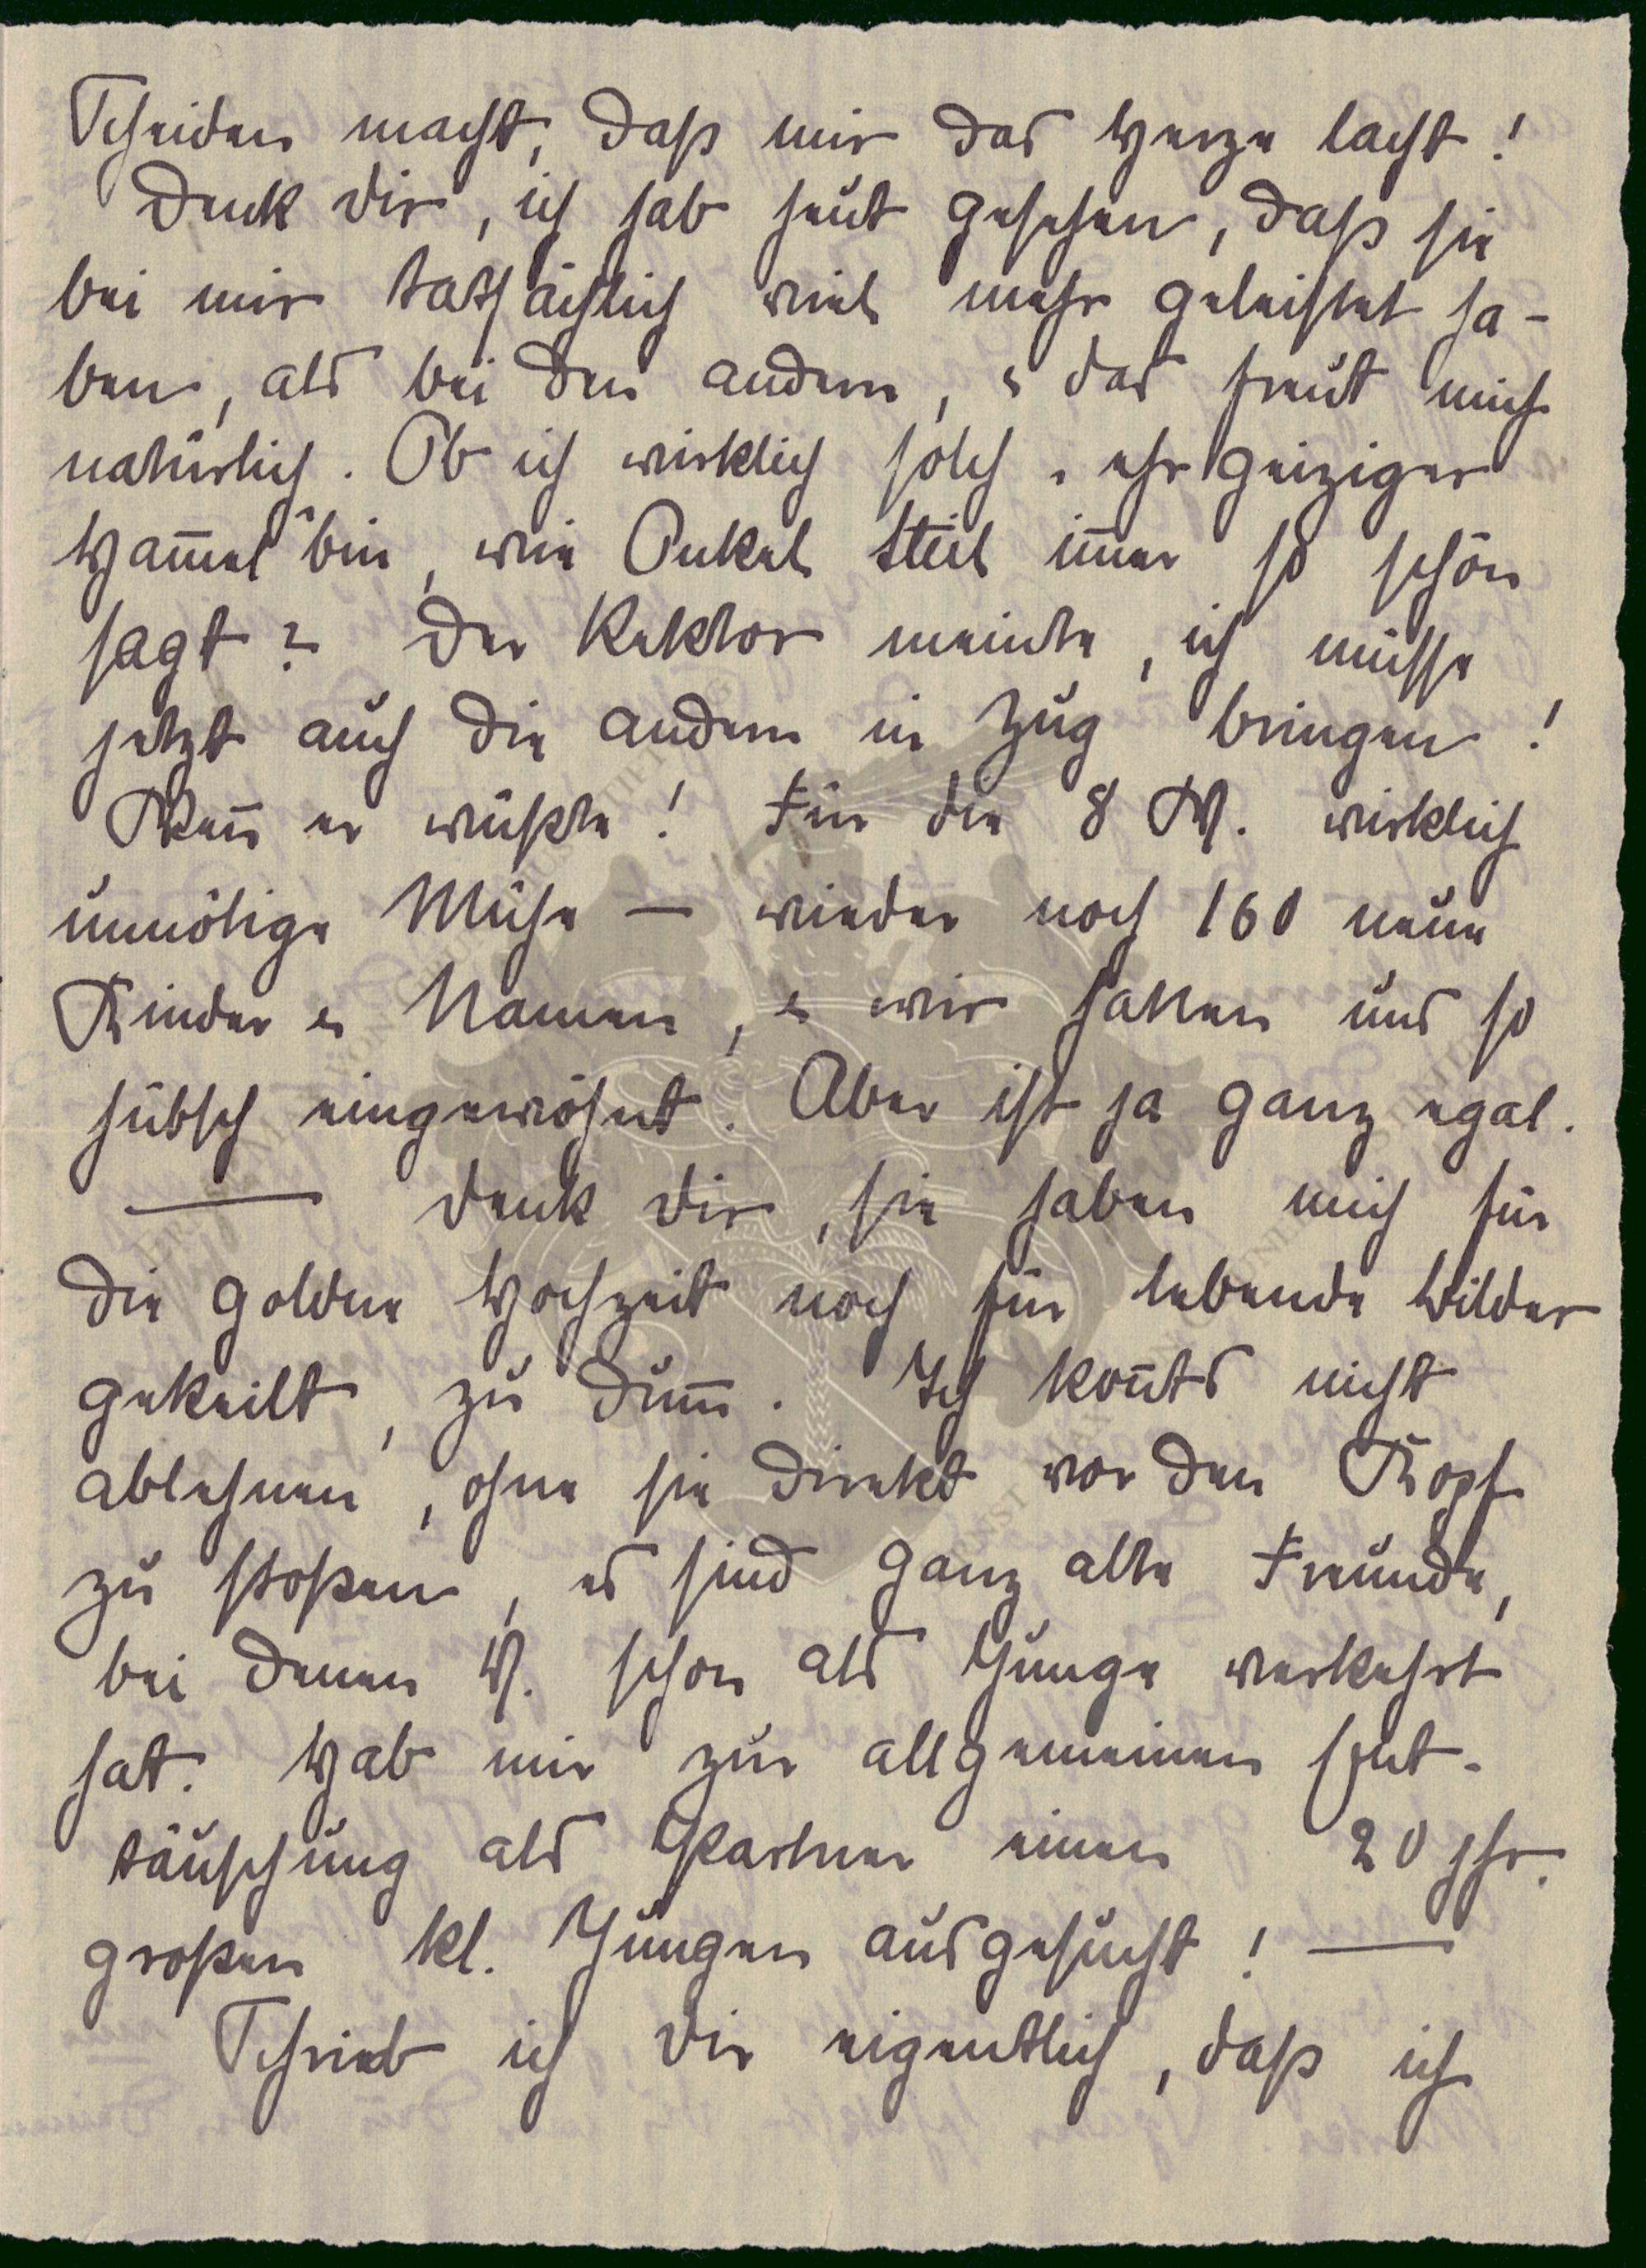 Scheiden macht, daß mir das Herze lacht!
Denk dir, ich hab heut gesehen, daß sie
bei mir tatsächlich viel mehr geleistet ha-
ben, als bei den andern, & das freut mich
natürlich. Ob ich wirklich solch "ehrgeiziger
Ham̄el" bin, wie Onkel im̄er so schön
sagt? Der Rektor meinte, ich müsse
jetzt auch die andern in Zug bringen!
Wen̄ er wüßte! Für die 8 W. wirklich
unnötige Mühe – wieder noch 160 neue
Kinder & Namen, & wir hatten uns so
hübsch eingewöhnt. Aber ist ja ganz egal.
— Denk dir, sie haben mich für
die goldne Hochzeit noch für lebende Bilder
gekeilt, zu dum̄. Ich kon̄ts nicht
ablehnen, ohne sie direkt vor den Kopf
zu stoßen, es sind ganz alte Freunde,
bei denen H. schon als Junge verkehrt
hat. Hab mir zur allgemeinen Ent-
täuschung als Partner einen 20 jhr.
großen kl. Jungen ausgesucht! —
Schrieb ich dir eigentlich, daß ich